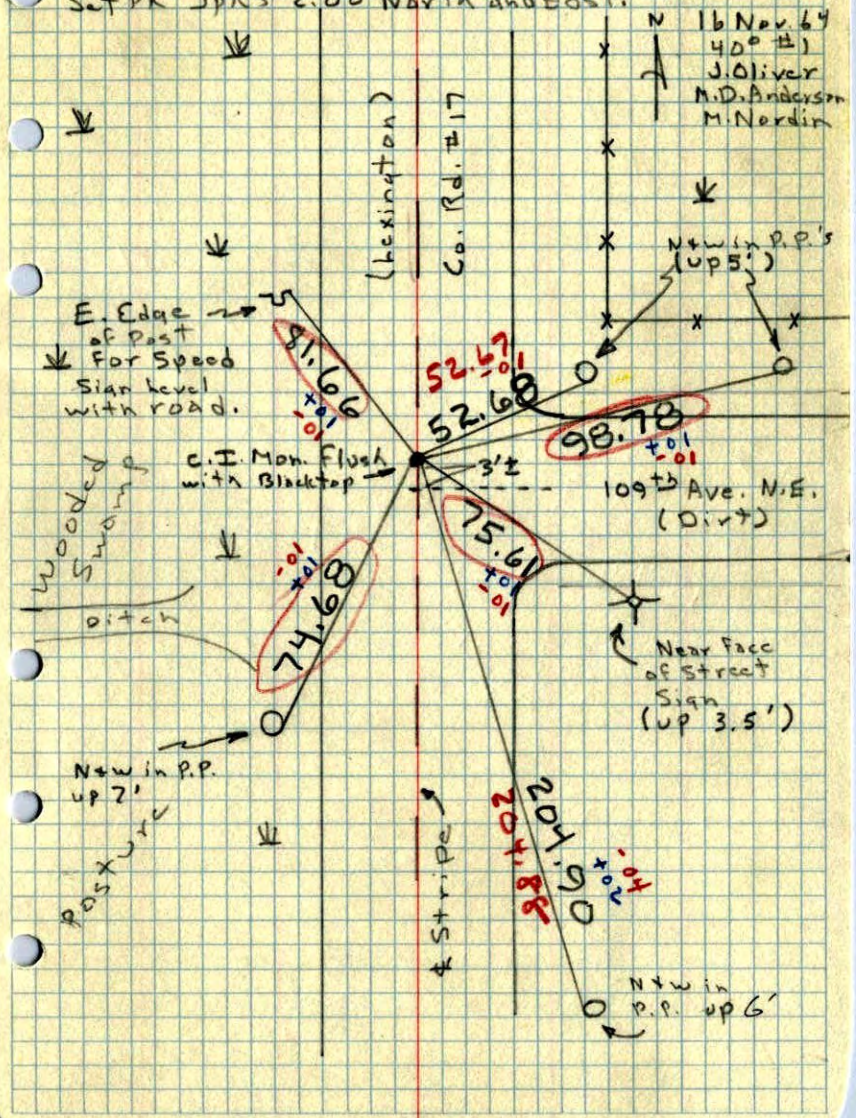 Set PK Spks 2.00 North and East.
N
16 Nov. 64
40° #1
J. Oliver
M.D. Anderson
M. Nordin
(Lexington)
Co. Rd. #17
N+W in P.P.'s
(up 5')
E. Edge
of Post
For Speed
Sign Level
with road.
81.66
+01
-01
52.67
-01
52.68
98.78
+01
-01
C.I. Mon. Flush
with Blacktop
3'±
109th Ave. N.E.
(Dirt)
75.61
+01
-01
Wooded
Swamp
Ditch
-01
+01
74.68
Near Face
of Street
Sign
(up 3.5')
N+W in P.P.
up 7'
Pasture
℄ Stripe
204.90
204.88
-04
+02
N+W in
P.P. up 6'